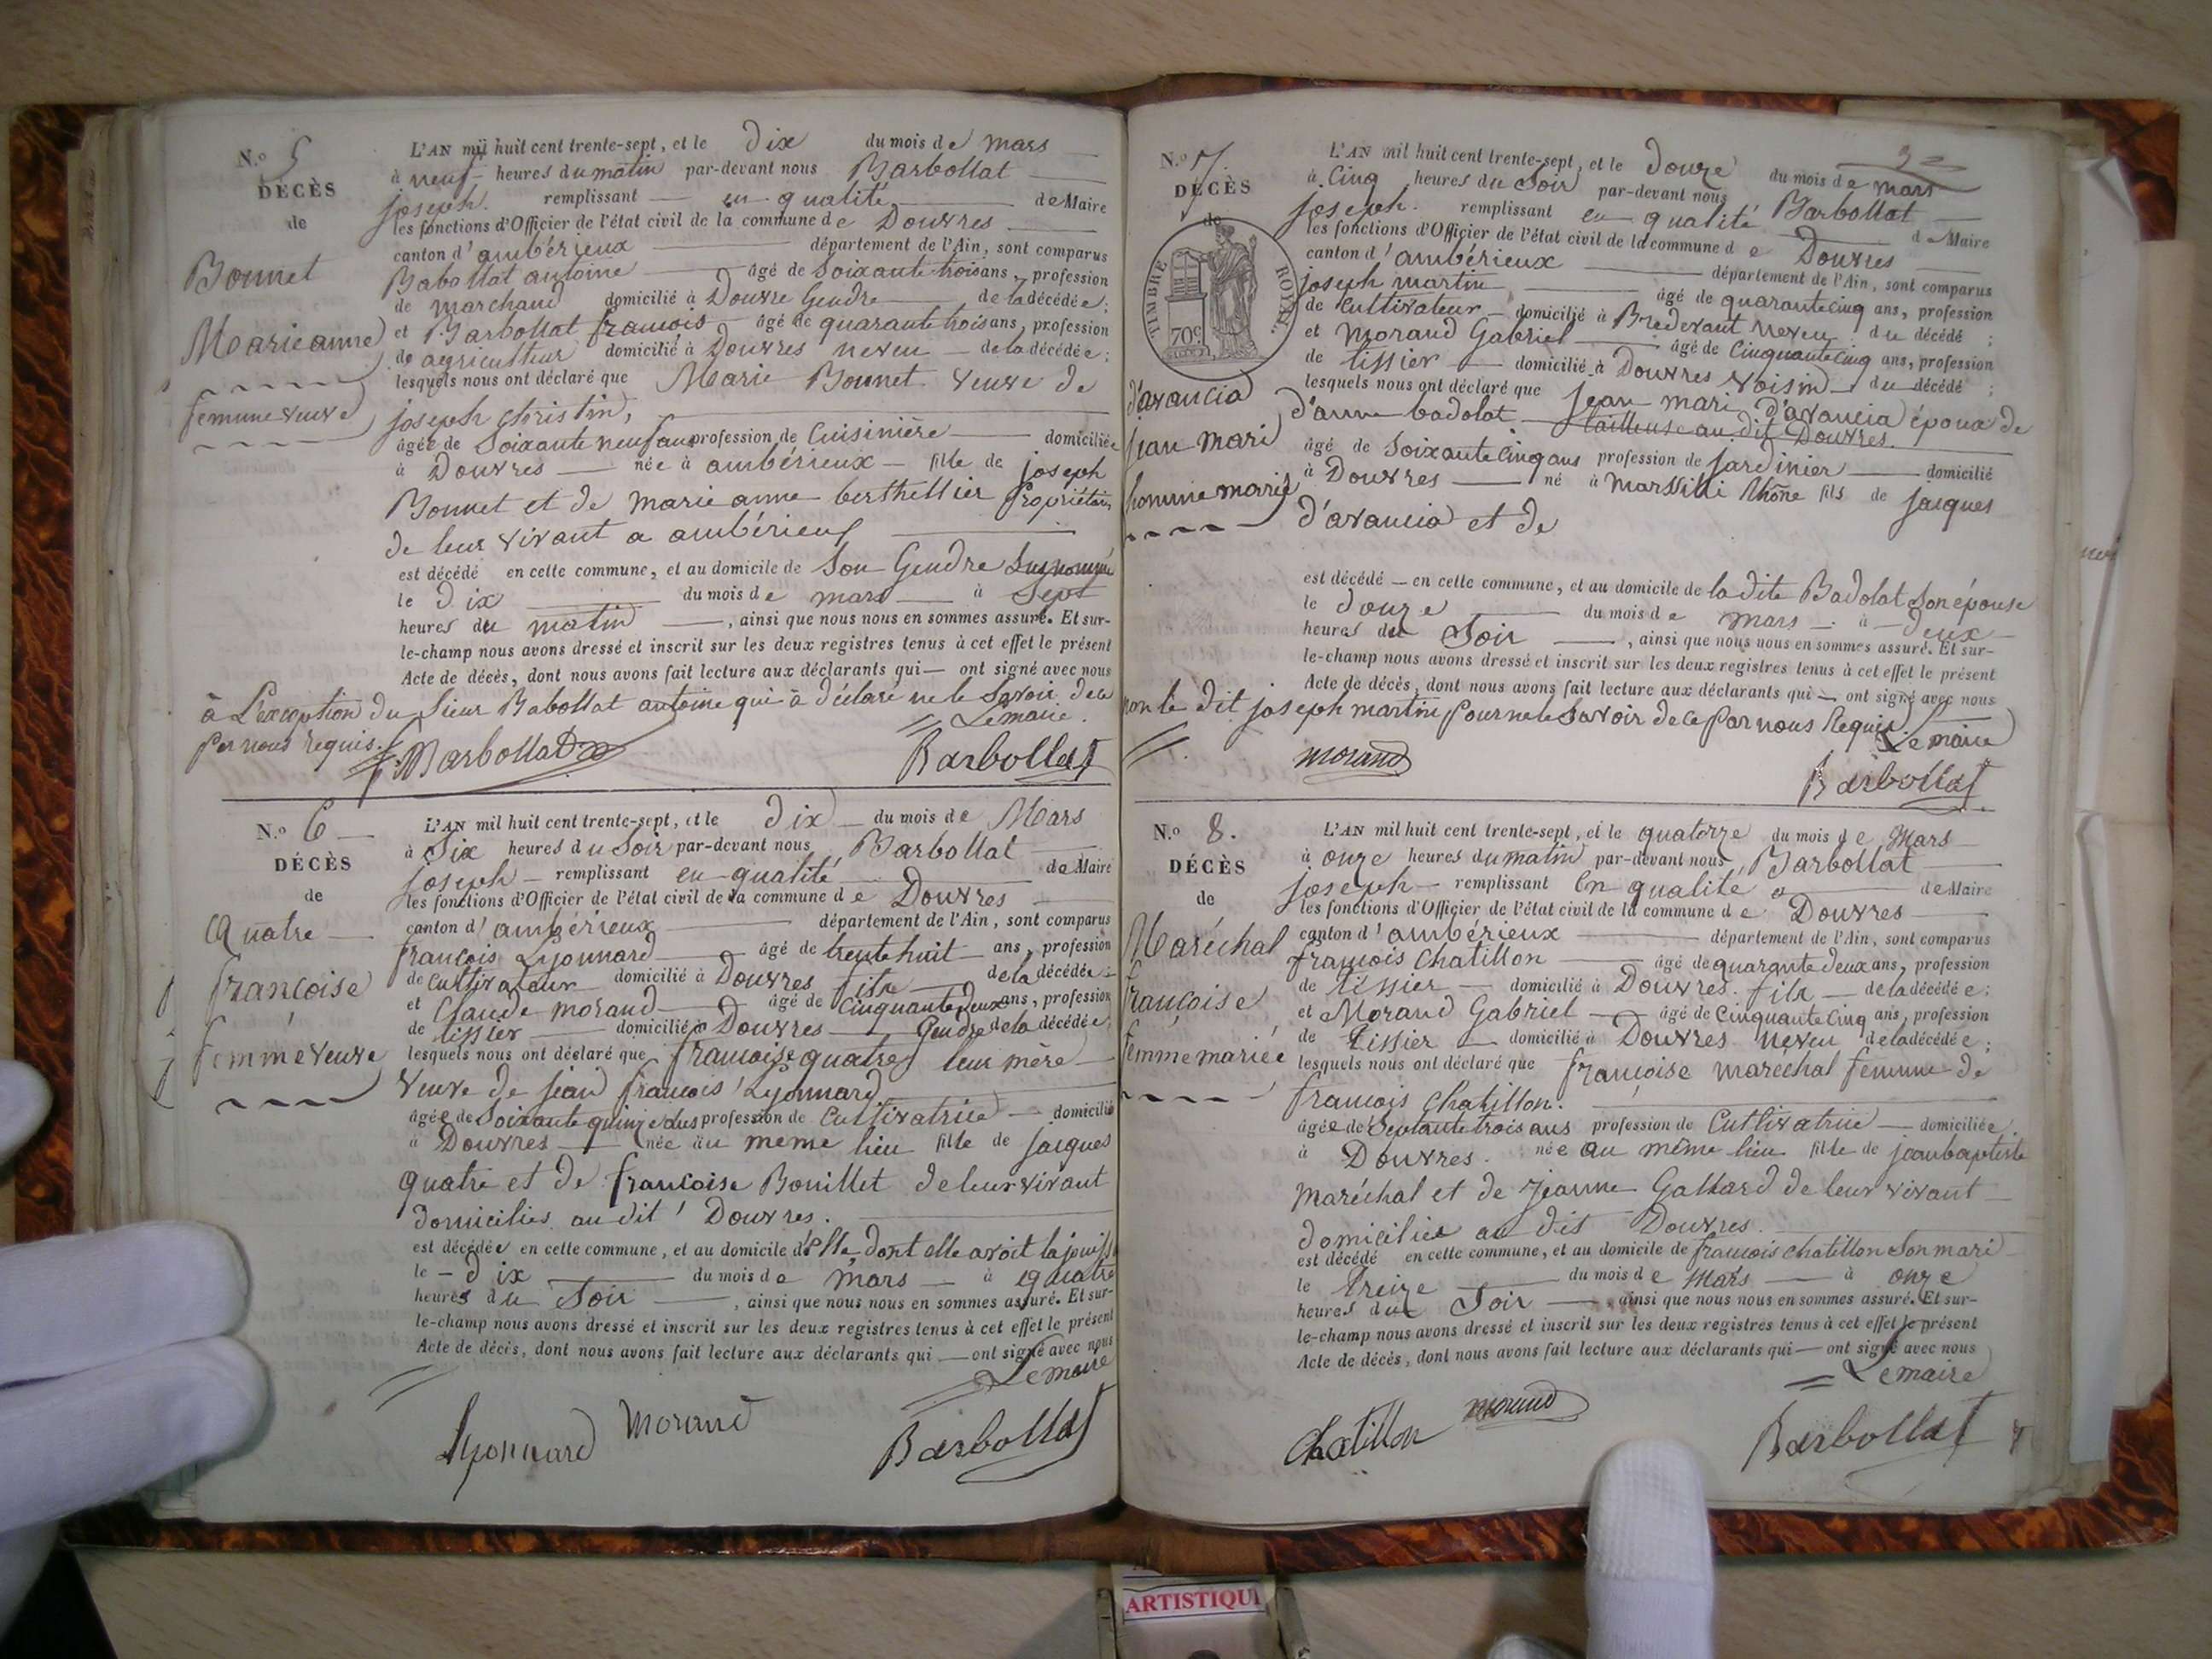 N.º 5
DÉCÈS
de
Bonnet
Marie anne
femme veuve
L'AN mil huit cent trente-sept, et le dix du mois de mars
à neuf heures du matin par-devant nous Barbollat
joseph remplissant en qualité de Maire
les fonctions d'Officier de l'état civil de la commune de Douvres
canton d'ambérieux département de l'Ain, sont comparus
Babollat antoine âgé de Soixante trois ans, profession
de marchand domicilié à Douvre Gendre de la décédée;
et Barbollat françois âgé de quarante trois ans, profession
de agriculteur domicilié à Douvres neveu de la décédée;
lesquels nous ont déclaré que Marie Bonnet veuve de
joseph christin,
âgée de Soixante neuf ans profession de Cuisinière domiciliée
à Douvres née à ambérieux fille de joseph
Bonnet et de marie anne berthellier Propriétaires
de leur vivant a ambérieux
est décédé en cette commune, et au domicile de Son Gendre Susnommé
le dix du mois de mars à Sept
heures du matin, ainsi que nous nous en sommes assuré. Et sur-
le-champ nous avons dressé et inscrit sur les deux registres tenus à cet effet le présent
Acte de décès, dont nous avons fait lecture aux déclarants qui ont signé avec nous
à L'exception du Sieur Babollat antoine qui à déclaré ne le Savoir de ce
par nous requis. Le maire
f. Barbollat Barbollat
N.º 6
DÉCÈS
de
Quatre
françoise
femme veuve
L'AN mil huit cent trente-sept, et le dix du mois de Mars
à Six heures du Soir par-devant nous Barbollat
joseph remplissant en qualité de Maire
les fonctions d'Officier de l'état civil de la commune de Douvres
canton d'ambérieux département de l'Ain, sont comparus
françois Lyonnard âgé de trente huit ans, profession
de cultivateur domicilié à Douvres fils de la décédée
et Claude morand âgé de Cinquante deux ans, profession
de tissier domicilié à Douvres Gendre de la décédée
lesquels nous ont déclaré que françoise quatre leur mère
veuve de jean françois Lyonnard
âgée de Soixante quinze ans profession de Cultivatrice domicilié
à Douvres née au même lieu fille de jacques
quatre et de françoise Bouillet de leur vivant
domiciliés au dit Douvres.
est décédée en cette commune, et au domicile d'Elle, dont elle avoit la jouiss
le dix du mois de Mars à quatre
heures du Soir, ainsi que nous nous en sommes assuré. Et sur-
le-champ nous avons dressé et inscrit sur les deux registres tenus à cet effet le présent
Acte de décès, dont nous avons fait lecture aux déclarants qui ont signé avec nous
Le maire
Lyonnard Morand Barbollat
N.º 7.
DÉCÈS
de
TIMBRE ROYAL.
70 c
d'avancia
jean mari
homme marié
L'AN mil huit cent trente-sept, et le douze du mois de mars
à Cinq heures du Soir par-devant nous Barbollat
joseph remplissant en qualité de Maire
les fonctions d'Officier de l'état civil de la commune de Douvres
canton d'ambérieux département de l'Ain, sont comparus
joseph martin âgé de quarante cinq ans, profession
de Cultivateur domicilié à Bredevant neveu du décédé;
et Morand Gabriel âgé de Cinquante Cinq ans, profession
de tissier domicilié à Douvres voisin du décédé;
lesquels nous ont déclaré que jean mari d'avancia époux de
d'anne badolat tailleuse au dit Douvres.
âgé de Soixante Cinq ans profession de jardinier domicilié
à Douvres né à Marssilli Rhône fils de jacques
d'avancia et de
est décédé en cette commune, et au domicile de la dite Badolat Son épouse
le douze du mois de mars à deux
heures du Soir, ainsi que nous nous en sommes assuré. Et sur-
le-champ nous avons dressé et inscrit sur les deux registres tenus à cet effet le présent
Acte de décès, dont nous avons fait lecture aux déclarants qui ont signé avec nous
non le dit joseph martin pour ne le Savoir de ce par nous Requis. Le maire
morand
Barbollat
N.º 8.
DÉCÈS
de
Maréchal
françoise
femme mariée
L'AN mil huit cent trente-sept, et le quatorze du mois de Mars
à onze heures du matin par-devant nous Barbollat
joseph remplissant En qualité de Maire
les fonctions d'Officier de l'état civil de la commune de Douvres
canton d'ambérieux département de l'Ain, sont comparus
françois Chatillon âgé de quarante deux ans, profession
de tissier domicilié à Douvres. fils de la décédée;
et Morand Gabriel âgé de Cinquante Cinq ans, profession
de Tissier domicilié à Douvres neveu de la décédée;
lesquels nous ont déclaré que françoise maréchal femme de
françois Chatillon.
âgée de Septante trois ans profession de Cultivatrice domiciliée
à Douvres. née au même lieu fille de jean baptiste
Maréchal et de Jeanne Galliard de leur vivant
domicilies au dit Douvres.
est décédé en cette commune, et au domicile de françois chatillon Son mari
le treize du mois de Mars à onze
heures du Soir, ainsi que nous nous en sommes assuré. Et sur-
le-champ nous avons dressé et inscrit sur les deux registres tenus à cet effet le présent
Acte de décès, dont nous avons fait lecture aux déclarants qui ont signé avec nous
Le maire
Chatillon morand Barbollat
ARTISTIQUE